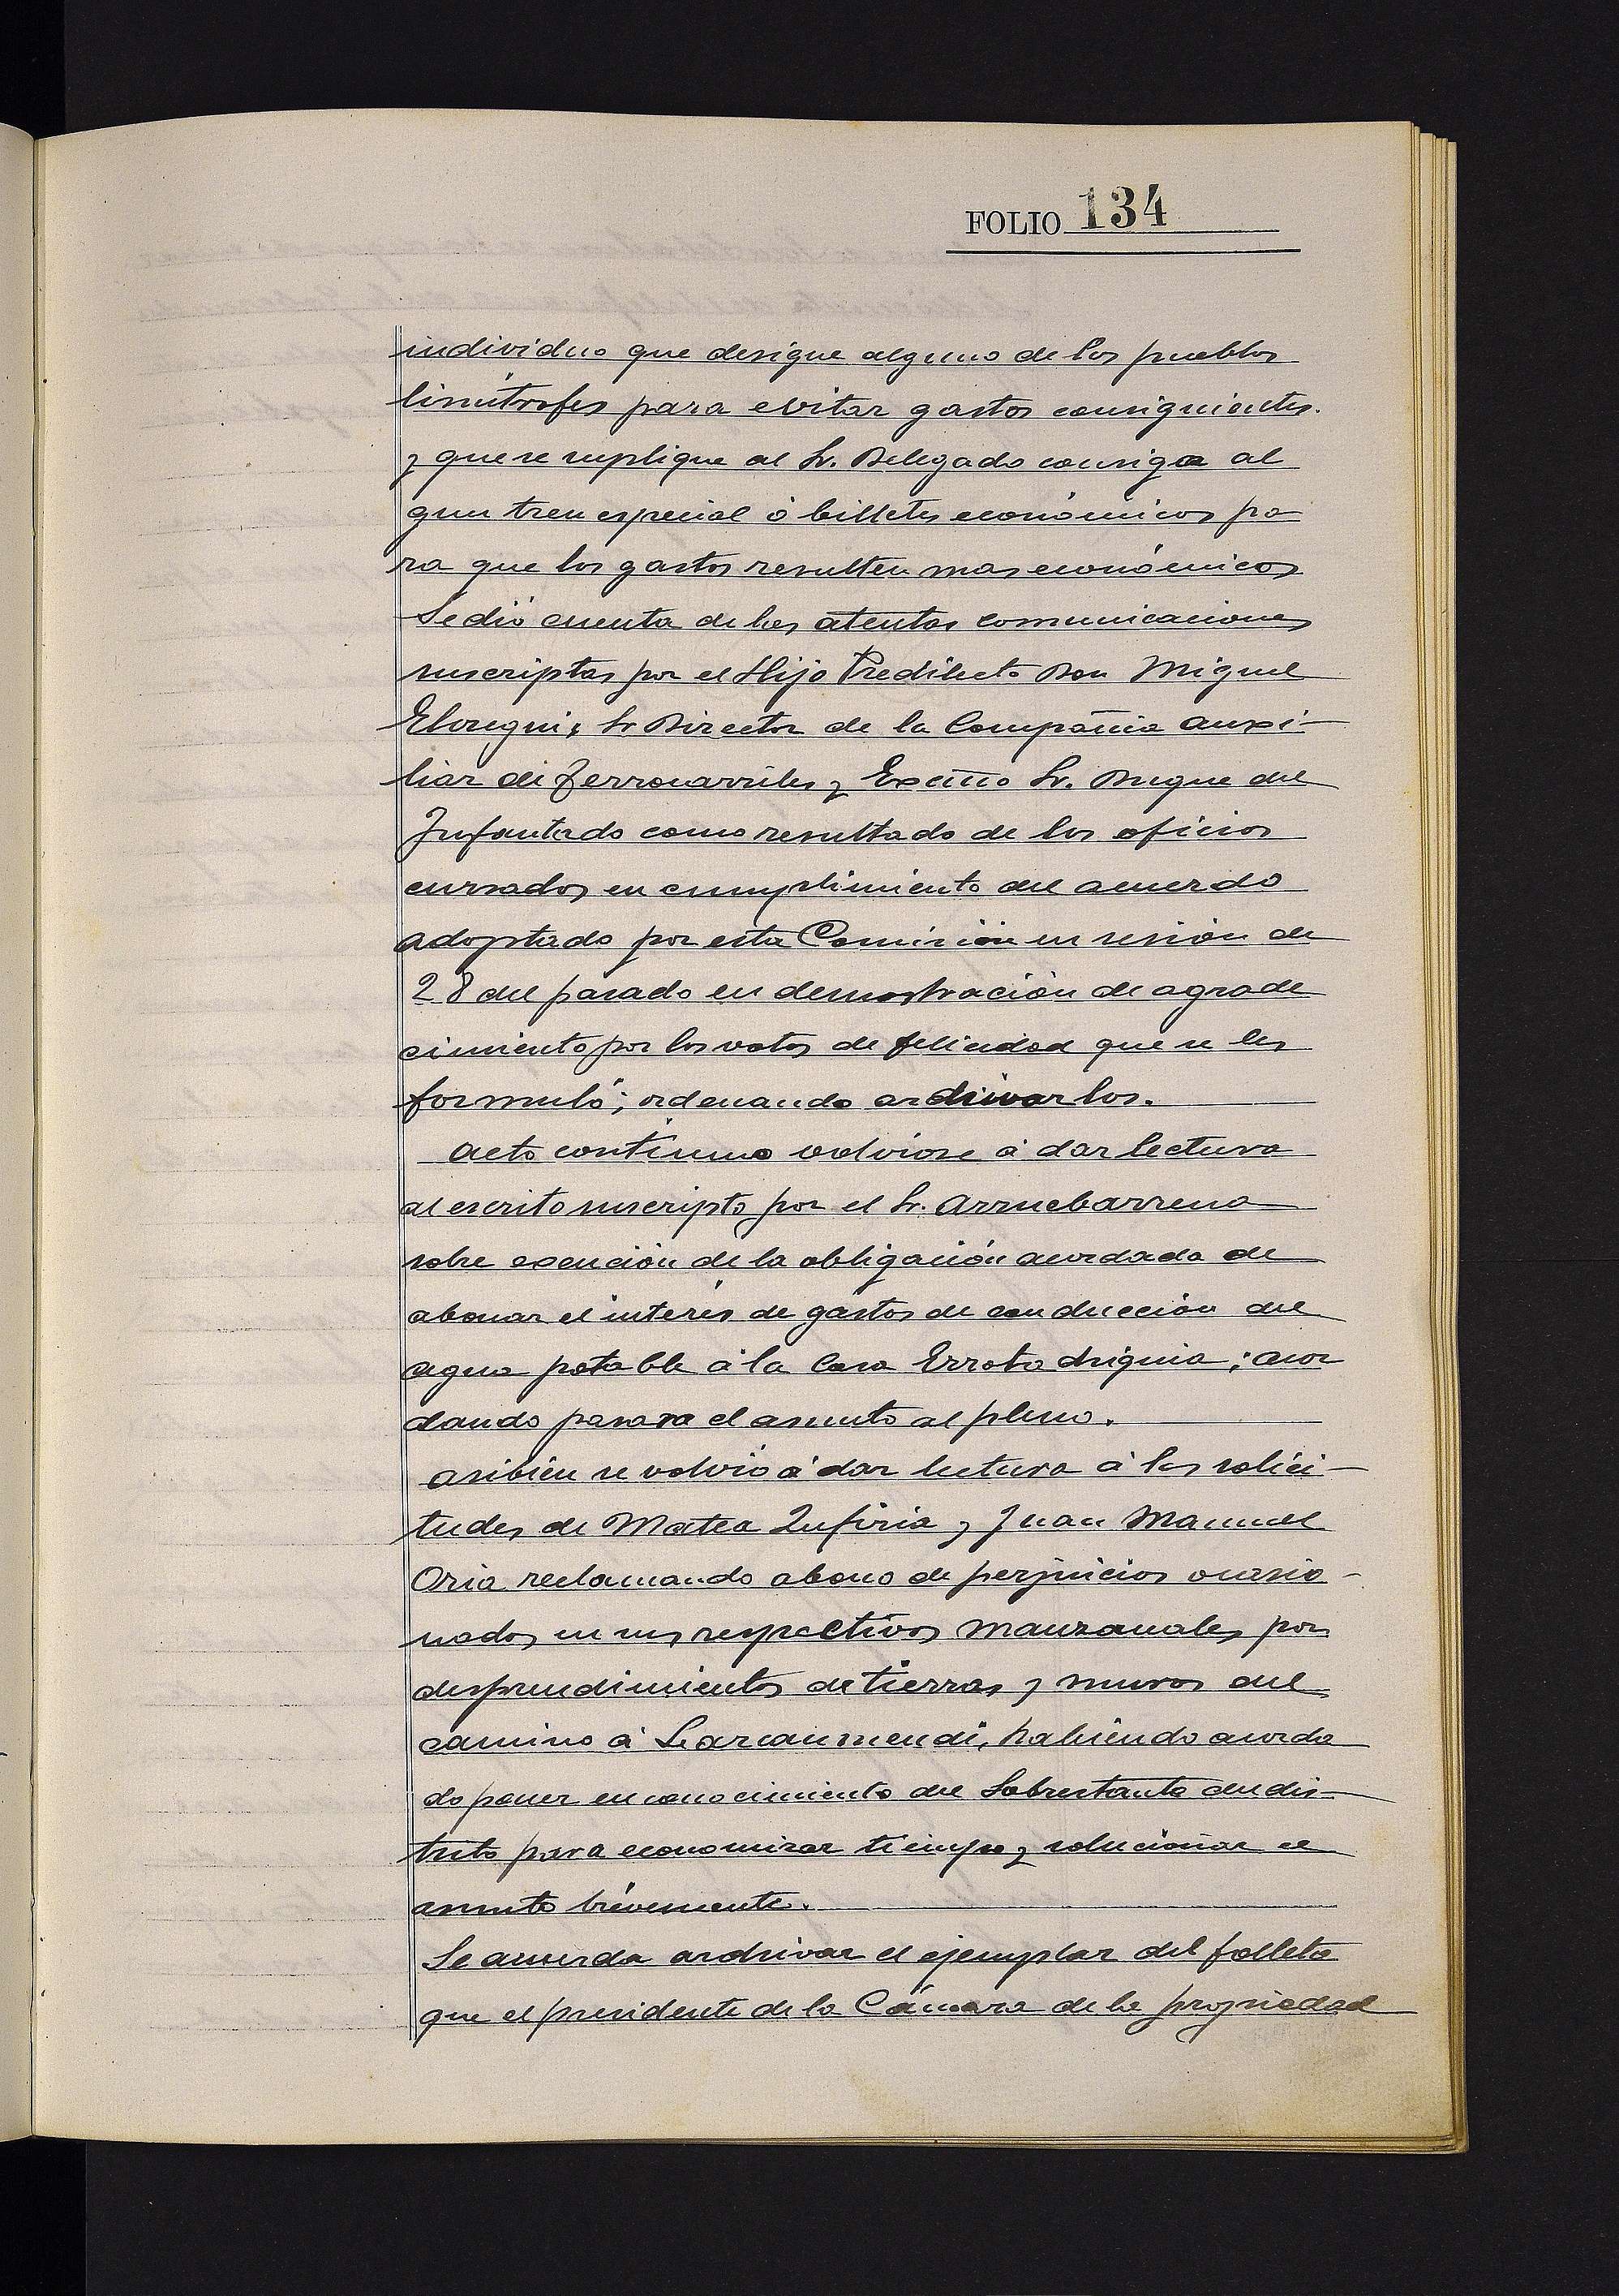 FOLIO 134
individuo que designe alguno de los pueblos
limítrofes para evitar gastos consiguientes.
y que se suplique al Sr. Delegado consiga al
gun tren especial ó billetes económicos pa
ra que los gastos resulten mas económicos
Se dió cuenta de las atentas comunicaciones
suscriptas por el Hijo Predilecto Don Miguel
Elosegui, Sr Director de la Compañia auxi-
liar de ferrocarriles y Excmo Sr. Duque del
Infantado como resultado de los oficios
cursados en cumplimiento del acuerdo
adoptado por esta Comisión en sesión de
28 del pasado en demostración de agrade
cimiento por los votos de felicidad que se les
formuló; ordenando archivarlos.
Acto continuo volvióse á dar lectura
al escrito suscripto por el Sr. Arruebarrena
sobre exención de la obligación acordada de
abonar el interés de gastos de conducción del
agua potable á la Casa Errota; acor
dando pasara el asunto al pleno.
Asibien se volvió á dar lectura á las solici-
tudes de Matea Zufiria y Juan Manuel
Oria reclamando abono de perjuicios ocasio-
nados en sus respectivos manzanales por
desprendimientos de tierras y muros del
camino á Larcaumendi, habiendo acorda
do poner en conocimiento del Sobrestante del dis-
trito para economizar tiempo y solucionar el
asunto brévemente.
Se acuerda archivar el ejemplar del folleto
que el presidente de la Cámara de la propiedad